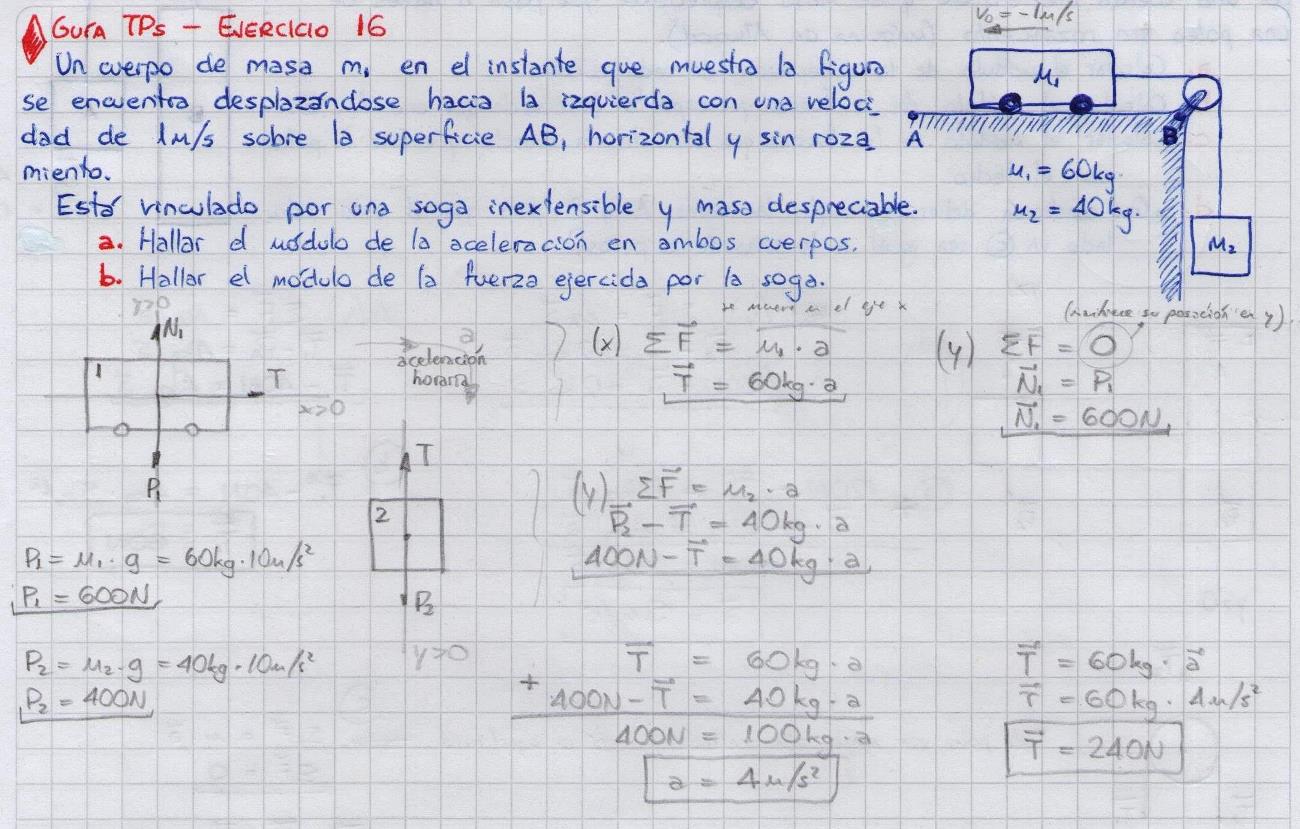 GUÍA TPs – EJERCICIO 16
Un cuerpo de masa m₁ en el instante que muestra la figura
se encuentra desplazándose hacia la izquierda con una veloci_
dad de 1m/s sobre la superficie AB, horizontal y sin roza_
miento.
Está vinculado por una soga inextensible y masa despreciable.
a. Hallar el módulo de la aceleración en ambos cuerpos.
b. Hallar el módulo de la fuerza ejercida por la soga.
V₀ = -1m/s
M₁
A
B
m₁ = 60kg.
m₂ = 40kg.
M₂
y>0
N₁
1
T
x>0
P₁
a
aceleración
horaria
se mueve en el eje x
(x) ΣF⃗ = m₁ · a
T⃗ = 60kg · a
(mantiene su posición en y).
(y) ΣF⃗ = 0
N⃗₁ = P₁
N⃗₁ = 600N
T
2
P₂
y>0
(y) ΣF⃗ = m₂ · a
P⃗₂ – T⃗ = 40kg · a
400N – T⃗ = 40kg · a
P₁ = m₁ · g = 60kg · 10m/s²
P₁ = 600N
P₂ = m₂ · g = 40kg · 10m/s²
P₂ = 400N
T⃗ = 60kg · a
+ 400N – T⃗ = 40kg · a
400N = 100kg · a
a = 4m/s²
T⃗ = 60kg · a⃗
T⃗ = 60kg · 4m/s²
T⃗ = 240N